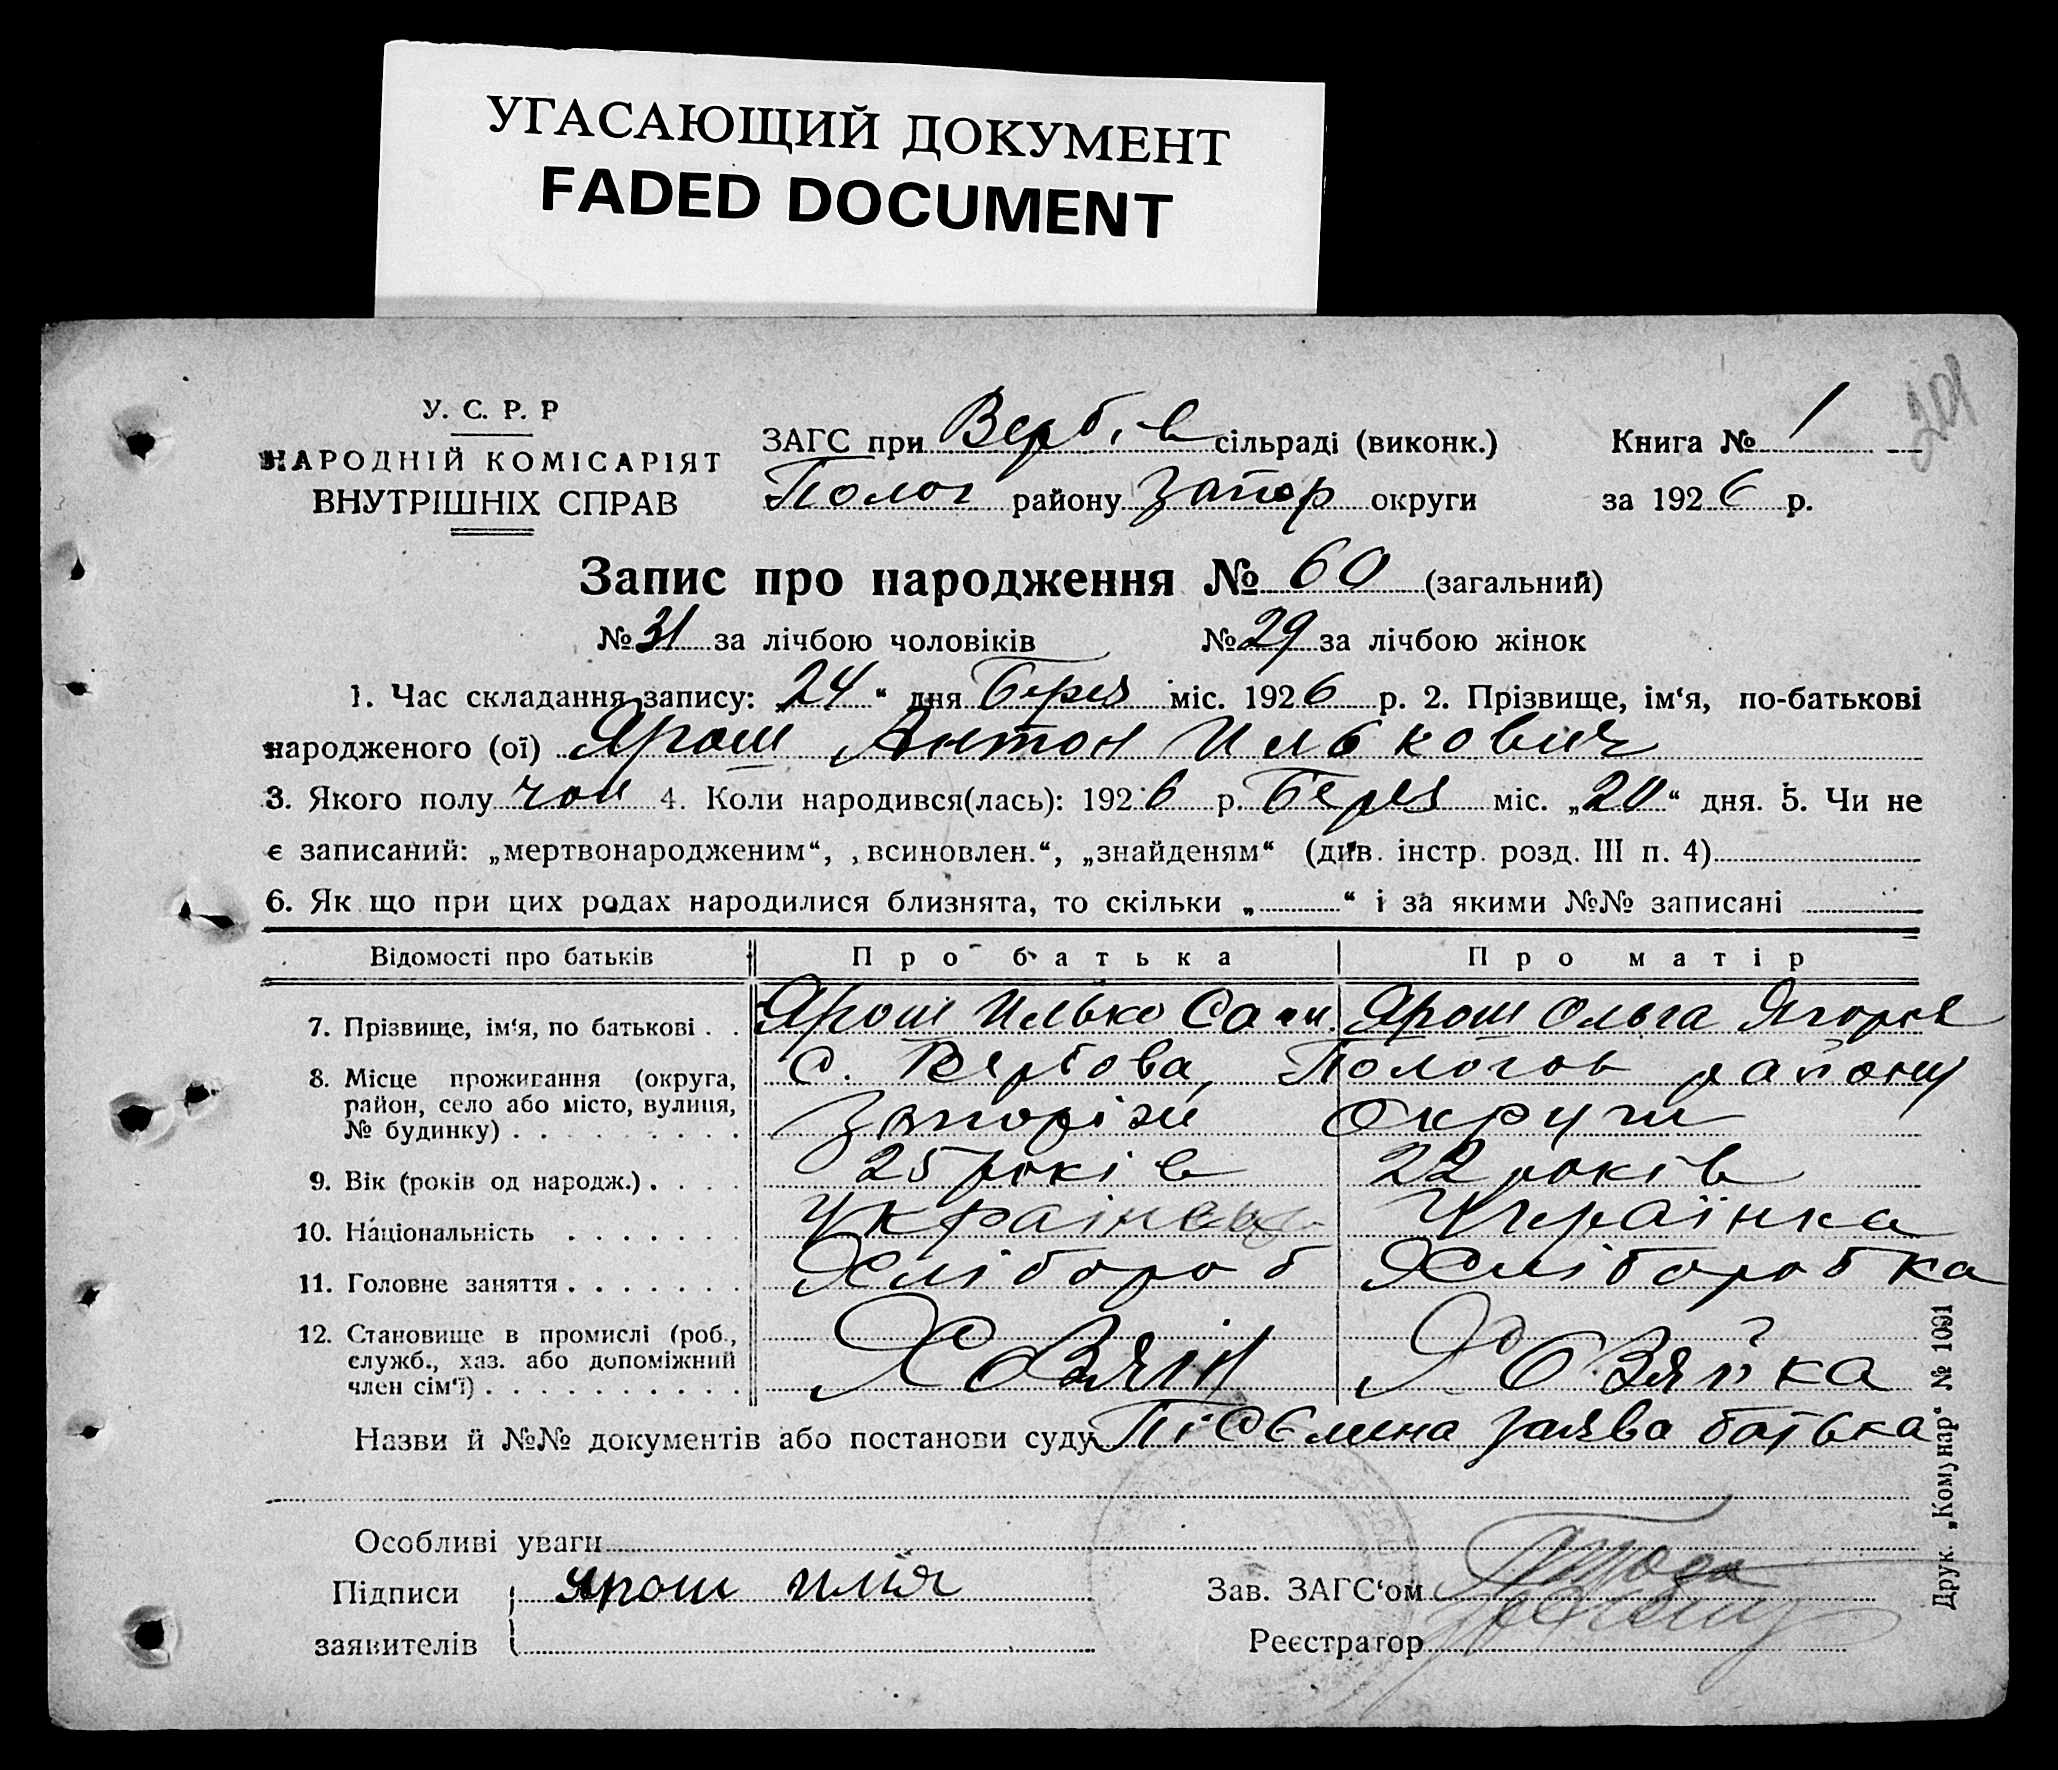 УГАСАЮЩИЙ ДОКУМЕНТ
FADED DOCUMENT
201
У. С. Р. Р
НАРОДНІЙ КОМІСАРІЯТ
ВНУТРІШНІХ СПРАВ
ЗАГС при Вербів сільраді (виконк.) Книга № 1
Полог району Запор округи за 1926 р.
Запис про народження № 60 (загальний)
№ 31 за лічбою чоловіків № 29 за лічбою жінок
1. Час складання запису: „24“ дня Берез міс. 1926 р. 2. Прізвище, ім‘я, по-батькові
народженого (ої) Ярош Антон Илькович
3. Якого полу чол 4. Коли народився(лась): 1926 р. Берез міс. „20“ дня. 5. Чи не
є записаний: „мертвонародженим“, „всиновлен.“, „знайденям“ (див. інстр. розд. III п. 4)
6. Як що при цих родах народилися близнята, то скільки „ “ і за якими №№ записані
Відомості про батьків Про батька Про матір
7. Прізвище, ім‘я, по батькові . . Ярош Илько Ярош Ольга Ягоров
8. Місце проживання (округа, с. Вербова, Пологов району
район, село або місто, вулиця,
№ будинку) . . . . . . . . . Запоріж Округи
9. Вік (років од народж.) . . . . 25 років 22 років
10. Національність . . . . . . . Українець Українка
11. Головне заняття . . . . . . . Хлібороб Хліборобка
12. Становище в промислі (роб.,
служб., хаз. або допоміжний
член сім‘ї) . . . . . . . . . . . Хозяін Хозяйка
Назви й №№ документів або постанови суду Підсмена заява батька
Особливі уваги
Підписи Ярош Илія Зав. ЗАГС‘ом
заявителів Реєстратор
Друк. „Комунар“ № 1091